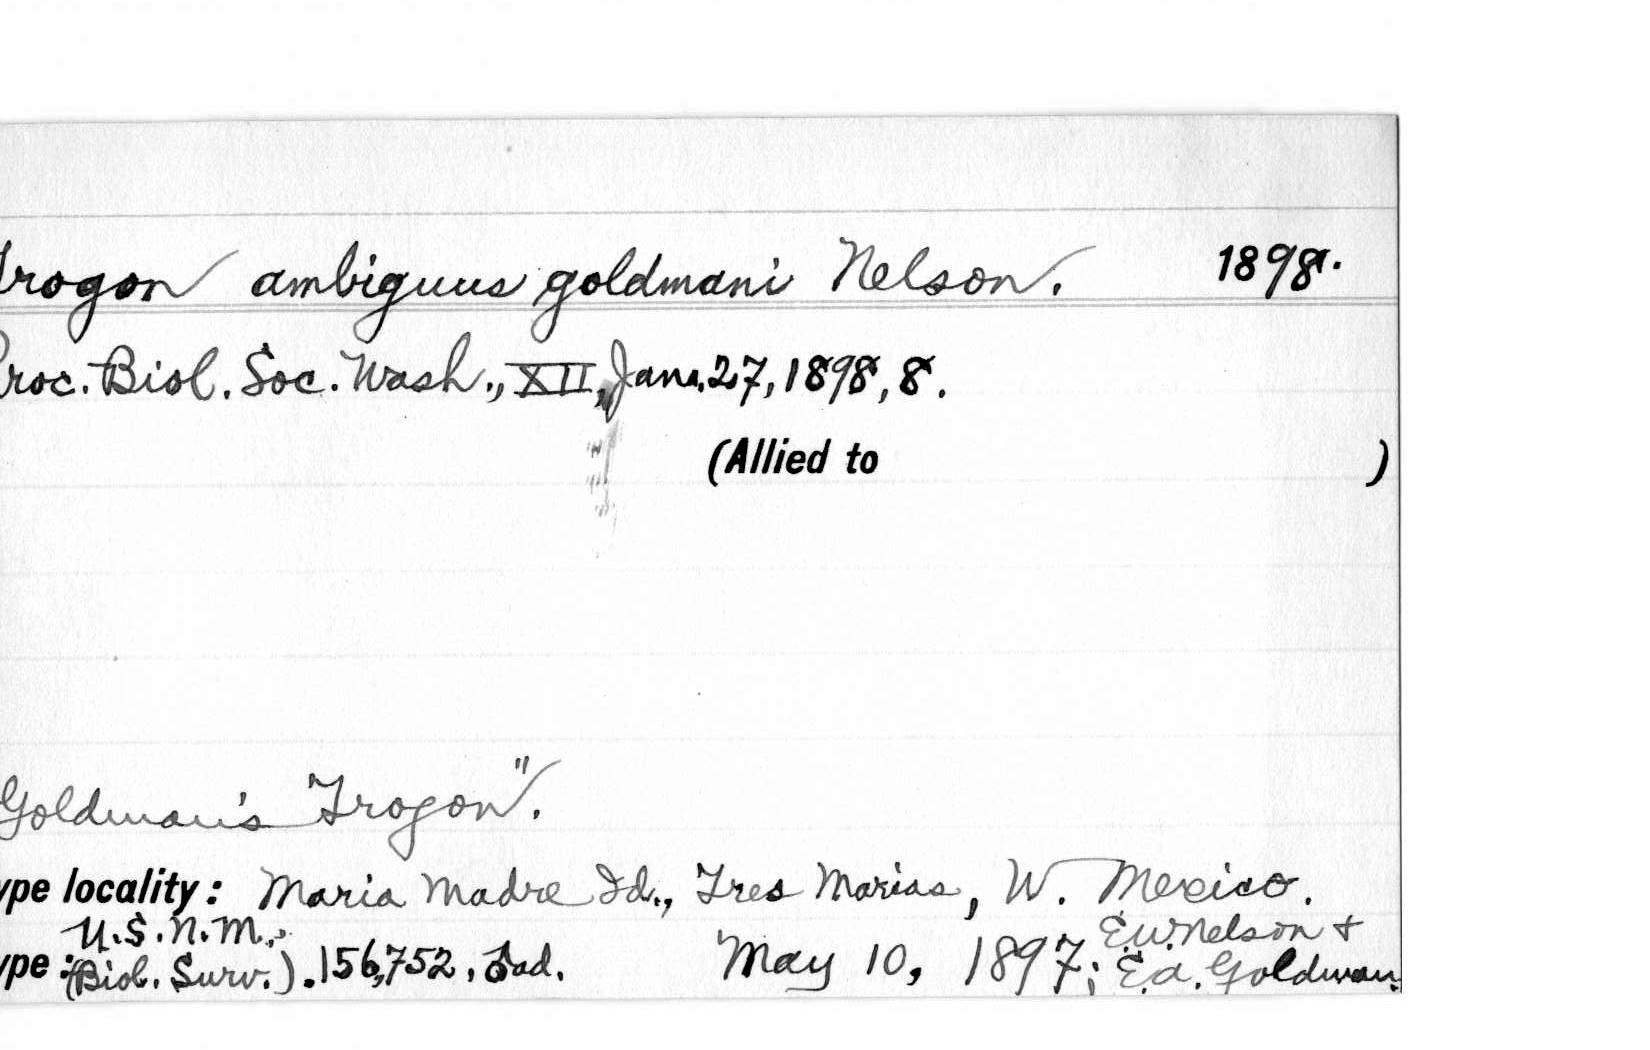 Trogon ambiguus goldmani Nelson. 1898.
Proc. Biol. Soc. Wash., XII, Jan. 27, 1898, 8.
(Allied to )
Goldman's "Trogon".
ype locality: Maria Madre Id., Tres Marias, W. Mexico.
U.S.N.M.,
ype: (Biol. Surv.). 156,752, ♂ad. May 10, 1897; E.W. Nelson &
E.A. Goldman.